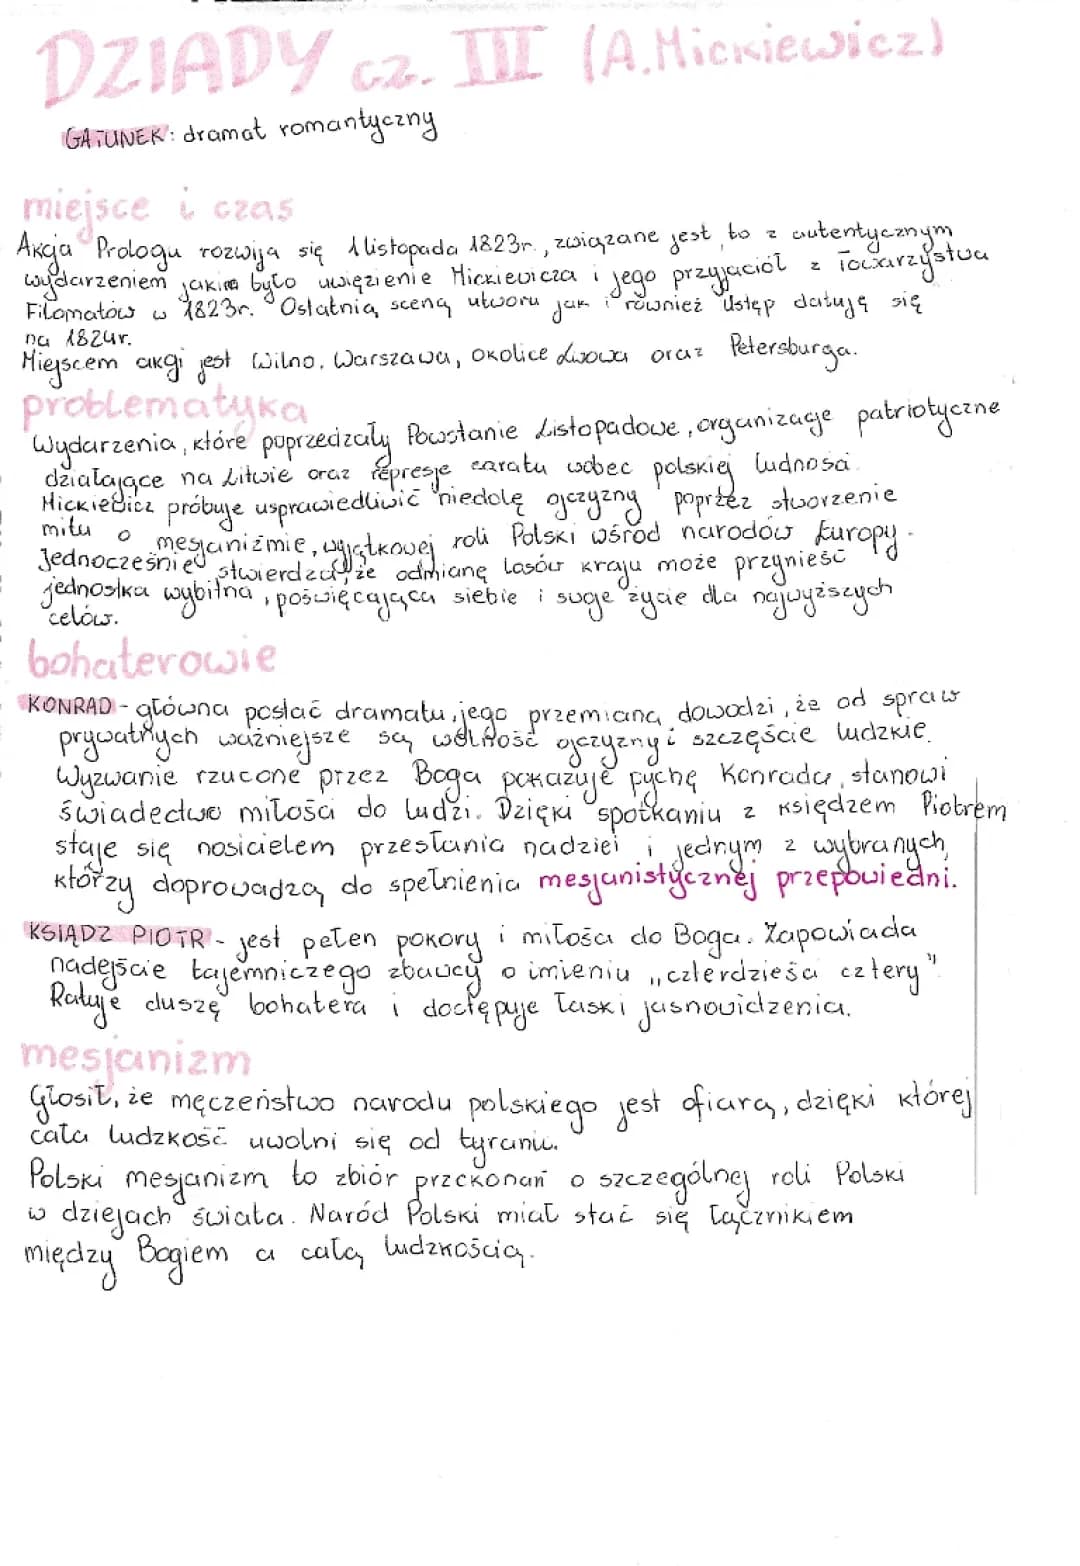 DZIADY cz. III (A.Mickiewicz)
GATUNEK: dramat romantyczny
miejsce i czas
Akcja Prologu rozwija się 1 listopada 1823r., związane jest to z autentycznym
wydarzeniem jakim było uwięzienie Mickiewicza i jego przyjaciół z Towarzystwa
Filomatów w 1823r. Ostatnią sceną utworu jak i również Ustęp datuję się
na 1824r.
Miejscem akcji jest Wilno, Warszawa, okolice Lwowa oraz Petersburga.
problematyka
Wydarzenia, które poprzedzały Powstanie Listopadowe, organizacje patriotyczne
działające na Litwie oraz represje caratu wobec polskiej ludności.
Mickiewicz próbuje usprawiedliwić niedolę ojczyzny poprzez stworzenie
mitu o mesjaniźmie, wyjątkowej roli Polski wśród narodów Europy.
Jednocześnie stwierdza, że odmianę losów kraju może przynieść
jednostka wybitna, poświęcająca siebie i swoje życie dla najwyższych
celów.
bohaterowie
KONRAD - główna postać dramatu, jego przemiana dowodzi, że od spraw
prywatnych ważniejsze są wolność ojczyzny i szczęście ludzkie.
Wyzwanie rzucone przez Boga pokazuje pychę Konrada, stanowi
świadectwo miłości do ludzi. Dzięki spotkaniu z księdzem Piotrem
staje się nosicielem przesłania nadziei i jednym z wybranych,
którzy doprowadzą do spełnienia mesjanistycznej przepowiedni.
KSIĄDZ PIOTR - jest pełen pokory i miłości do Boga. Zapowiada
nadejście tajemniczego zbawcy o imieniu „czterdzieści cztery"
Ratuje duszę bohatera i dostępuje łaski jasnowidzenia.
mesjanizm
Głosił, że męczeństwo narodu polskiego jest ofiarą, dzięki której
cała ludzkość uwolni się od tyranii.
Polski mesjanizm to zbiór przekonań o szczególnej roli Polski
w dziejach świata. Naród Polski miał stać się łącznikiem
między Bogiem a całą ludzkością.